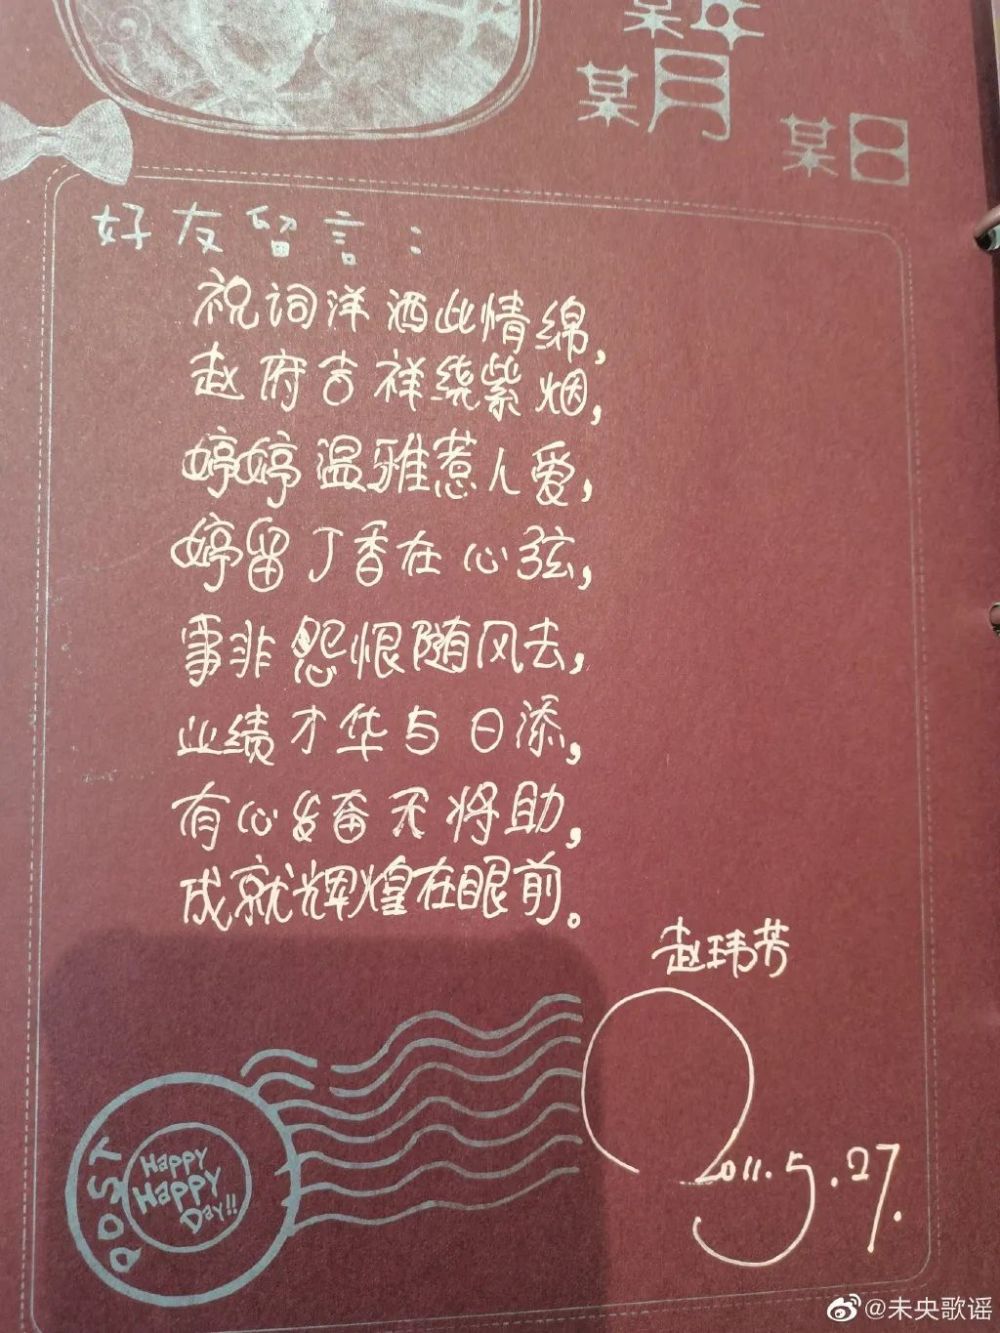 某年
某月
某日
好友留言：
祝词洋洒此情绵，
赵府吉祥绕紫烟，
婷婷温雅惹人爱，
婷留丁香在心弦，
事非怨恨随风去，
业绩才华与日添，
有心发奋天将助，
成就辉煌在眼前。
赵玮芳
2011.5.27.
POST
Happy
Happy
Day!!
@未央歌谣